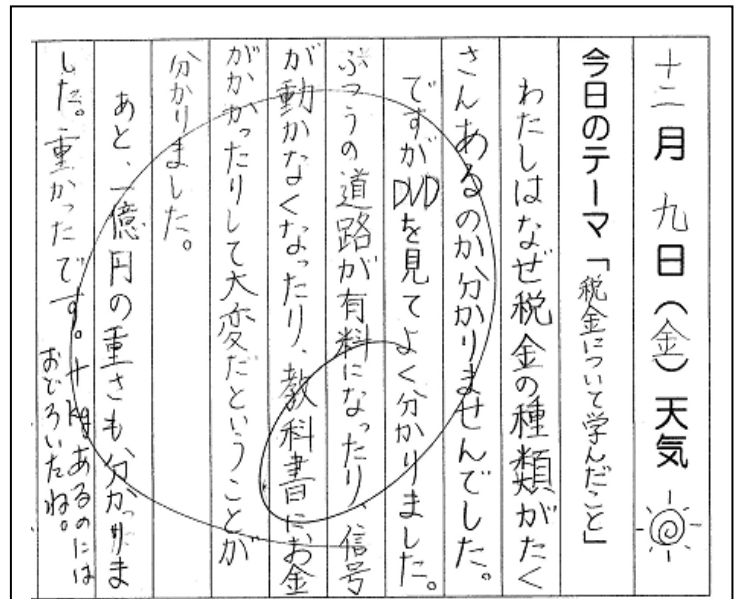 十二月九日(金)天気
今日のテーマ「税金について学んだこと」
わたしはなぜ税金の種類がたく
さんあるのか分かりませんでした。
ですがDVDを見てよく分かりました。
ふつうの道路が有料になったり、信号
が動かなくなったり、教科書にお金
がかかったりして大変だということが
分かりました。
あと、一億円の重さも分かりま
した。重かったです。
十kgあるのには
おどろいたね。